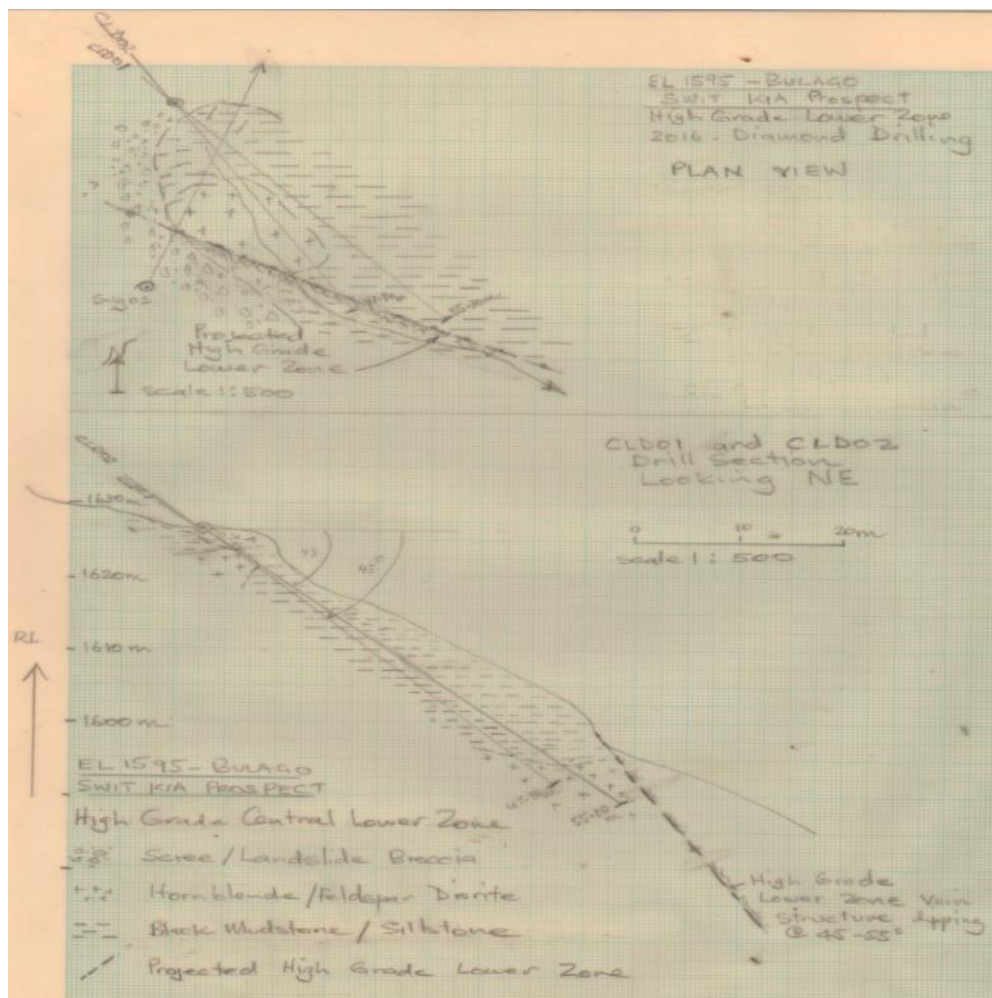 CLD02
CLD01
EL 1595 - BULAGO
SWIT KIA Prospect
High Grade Lower Zone
2016 - Diamond Drilling
PLAN VIEW
55.20m
Projected
High Grade
Lower Zone
N
scale 1:500
CLD01 and CLD02
Drill Section
Looking NE
CLD02
1630m
0 10 20m
scale 1:500
45°
1620m
RL
1610m
1600m
EL 1595 - BULAGO
SWIT KIA PROSPECT
High Grade Central Lower Zone
Scree/Landslide Breccia
Hornblende/Feldspar Diorite
Black Mudstone / Siltstone
Projected High Grade Lower Zone
High Grade
Lower Zone Vein
Structure dipping
@ 45-55°